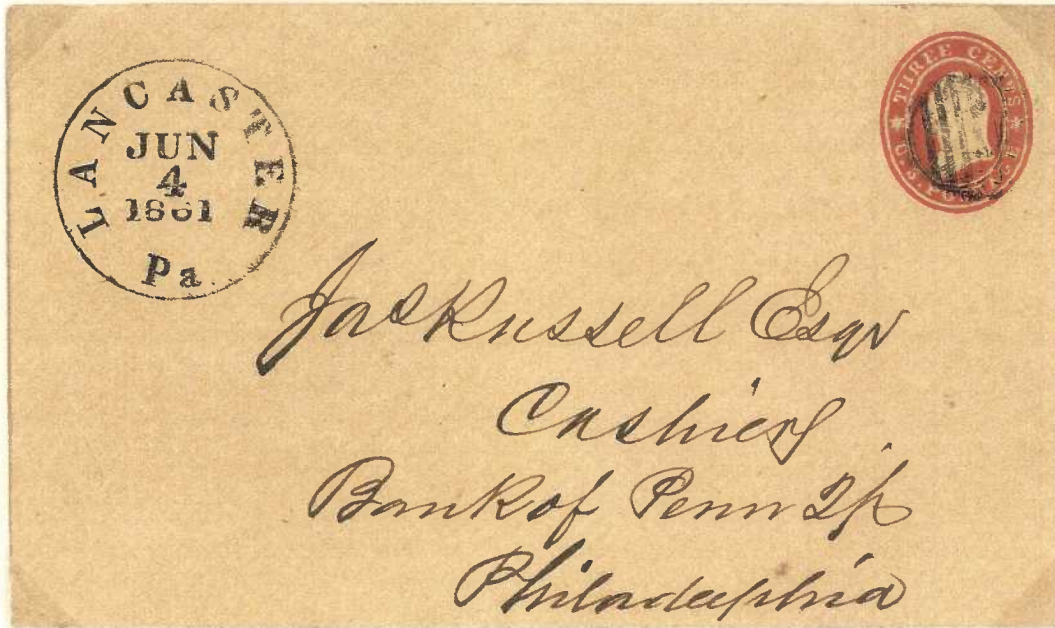 LANCASTER
JUN
4
1861
Pa
THREE CENTS
U.S. POSTAGE
Jas Russell Esqr
Cashier
Bank of Penn Tp
Philadelphia